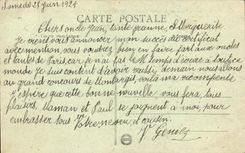 Samedi 28 juin 1924
CARTE POSTALE
Chers oncle Jean, tante Jeanne, et Marguerite
Je viens vous annoncer mon succès au certificat
avec mention, vous voudrez bien en faire part aux oncles
et tante de Paris car je n'ai pas le temps d'écrire à tout le
monde je suis content d'avoir réussi, demain nous allons
au grand concours de Montargis, voilà ma récompense
J'espère que cette bonne nouvelle vous fera tous
plaisirs, Maman et Paul se joignent à moi, pour
embrasser tous Votre neveu et cousin